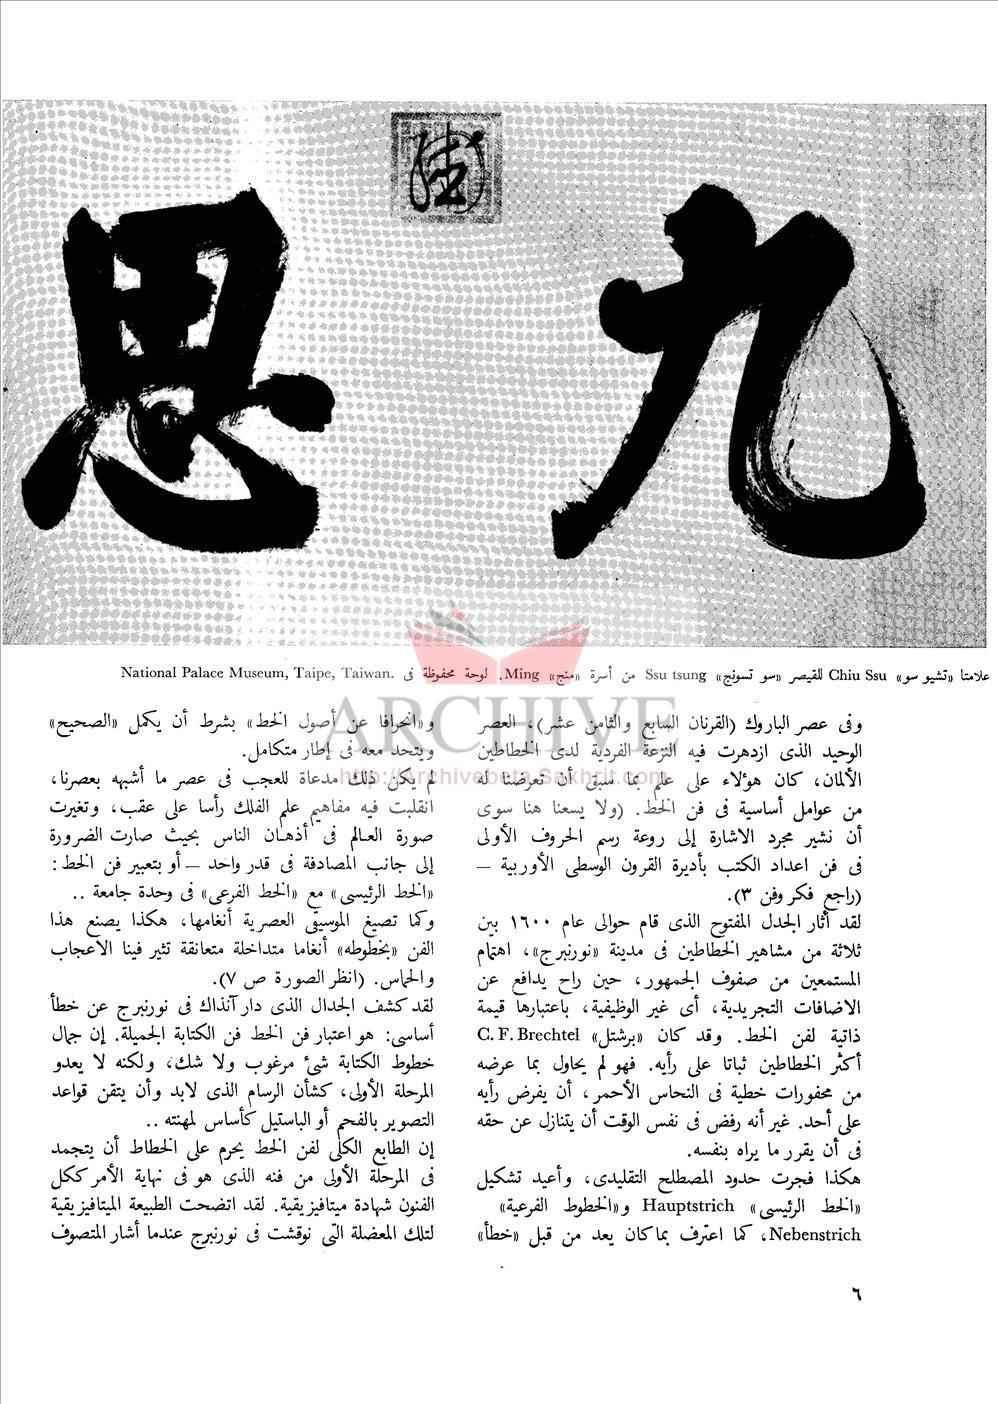 九思
علامتا «تشيو سو» Chiu Ssu للقيصر «سو تسونج» Ssu tsung من أسرة «منج» Ming. لوحة محفوظة فى National Palace Museum, Taipe, Taiwan.
وفى عصر الباروك (القرنان السابع والثامن عشر)، العصر
الوحيد الذى ازدهرت فيه النزعة الفردية لدى الخطاطين
الألمان، كان هؤلاء على علم بما سبق أن تعرضنا له
من عوامل أساسية فى فن الخط. (ولا يسعنا هنا سوى
أن نشير مجرد الاشارة إلى روعة رسم الحروف الأولى
فى فن اعداد الكتب بأديرة القرون الوسطى الأوربية —
(راجع فكر وفن ٣).
لقد أثار الجدل المفتوح الذى قام حوالى عام ١٦٠٠ بين
ثلاثة من مشاهير الخطاطين فى مدينة «نورنبرج»، اهتمام
المستمعين من صفوف الجمهور، حين راح يدافع عن
الاضافات التجريدية، أى غير الوظيفية، باعتبارها قيمة
ذاتية لفن الخط. وقد كان «برشتل» C. F. Brechtel
أكثر الخطاطين ثباتا على رأيه. فهو لم يحاول بما عرضه
من محفورات خطية فى النحاس الأحمر، أن يفرض رأيه
على أحد. غير أنه رفض فى نفس الوقت أن يتنازل عن حقه
فى أن يقرر ما يراه بنفسه.
هكذا فجرت حدود المصطلح التقليدى، وأعيد تشكيل
«الخط الرئيسى» Hauptstrich و«الخطوط الفرعية»
Nebenstrich، كما اعترف بما كان يعد من قبل «خطأ»
و«انحرافا عن أصول الخط» بشرط أن يكمل «الصحيح»
ويتحد معه فى إطار متكامل.
لم يكن ذلك مدعاة للعجب فى عصر ما أشبهه بعصرنا،
انقلبت فيه مفاهيم علم الفلك رأسا على عقب، وتغيرت
صورة العالم فى أذهان الناس بحيث صارت الضرورة
إلى جانب المصادفة فى قدر واحد — أو بتعبير فن الخط :
«الخط الرئيسى» مع «الخط الفرعى» فى وحدة جامعة ..
وكما تصيغ الموسيقى العصرية أنغامها، هكذا يصنع هذا
الفن «بخطوطه» أنغاما متداخلة متعانقة تثير فينا الاعجاب
والحماس. (انظر الصورة ص ٧).
لقد كشف الجدال الذى دار آنذاك فى نورنبرج عن خطأ
أساسى: هو اعتبار فن الخط فن الكتابة الجميلة. إن جمال
خطوط الكتابة شىء مرغوب ولا شك، ولكنه لا يعدو
المرحلة الأولى، كشأن الرسام الذى لابد وأن يتقن قواعد
التصوير بالفحم أو الباستيل كأساس لمهنته ..
إن الطابع الكلى لفن الخط يحرم على الخطاط أن يتجمد
فى المرحلة الأولى من فنه الذى هو فى نهاية الأمر ككل
الفنون شهادة ميتافيزيقية. لقد اتضحت الطبيعة الميتافيزيقية
لتلك المعضلة التى نوقشت فى نورنبرج عندما أشار المتصوف
٦
ARCHIVE
http://Archivebeta.Sakhrit.com